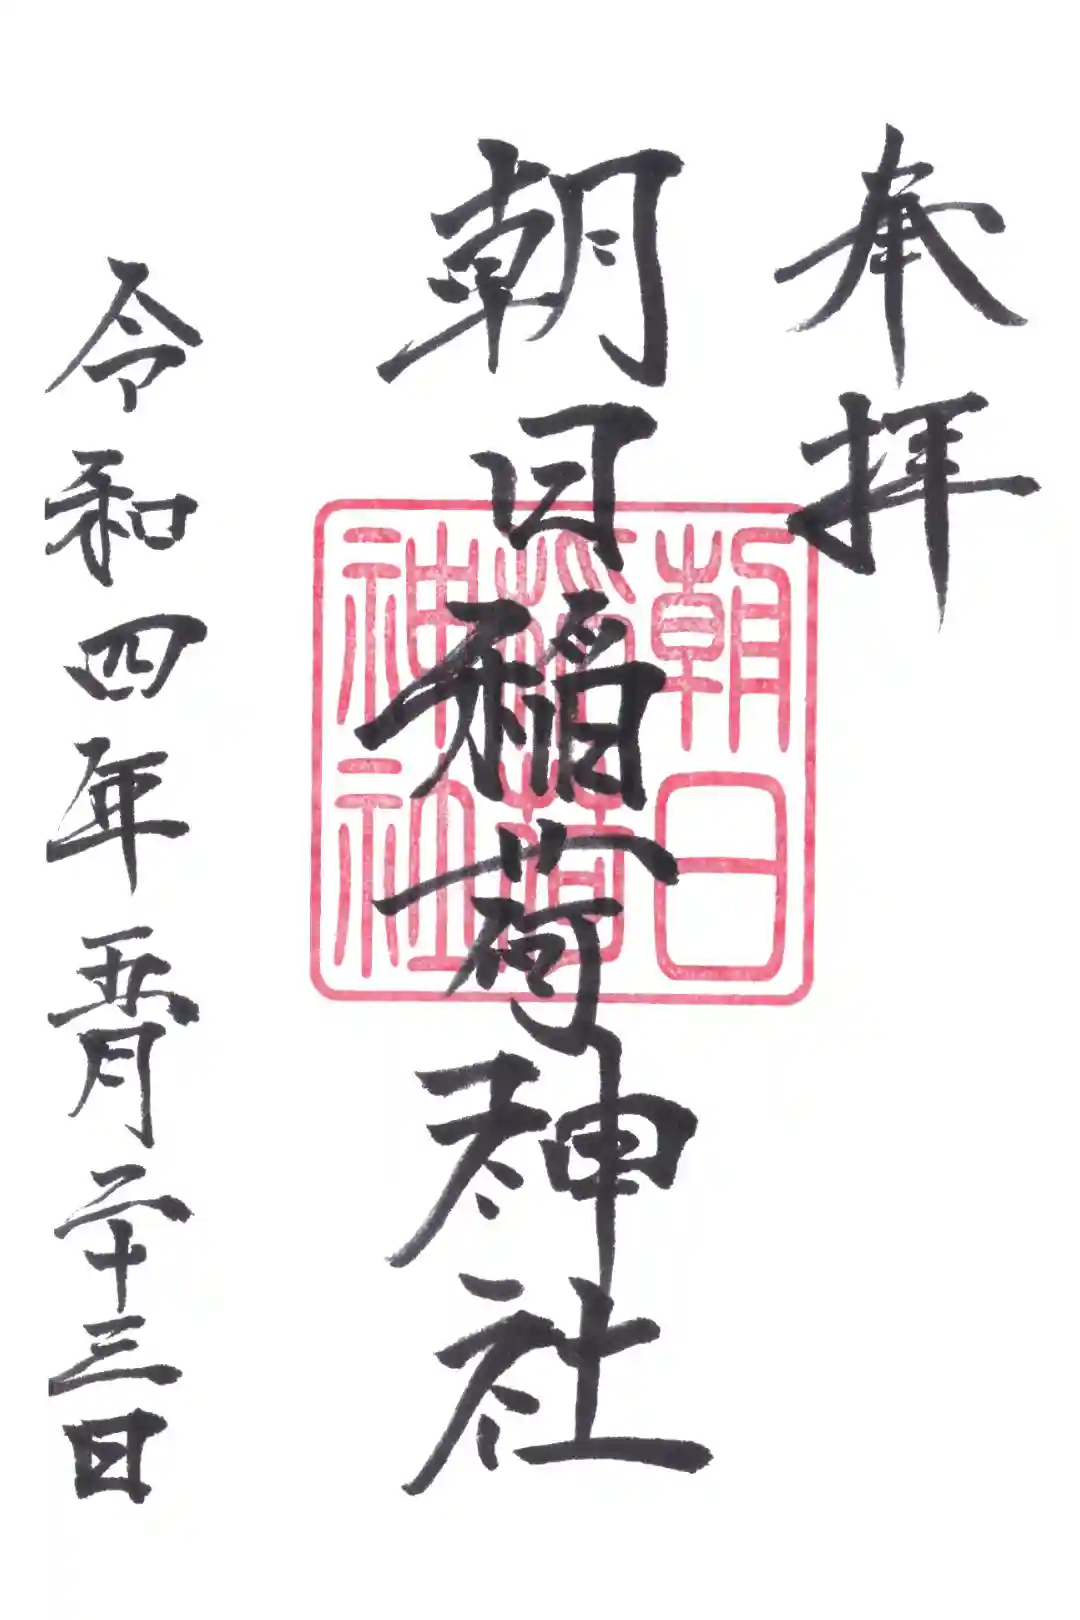 奉拝
朝日稲荷神社
朝日
稲荷
神社
令和四年五月二十三日